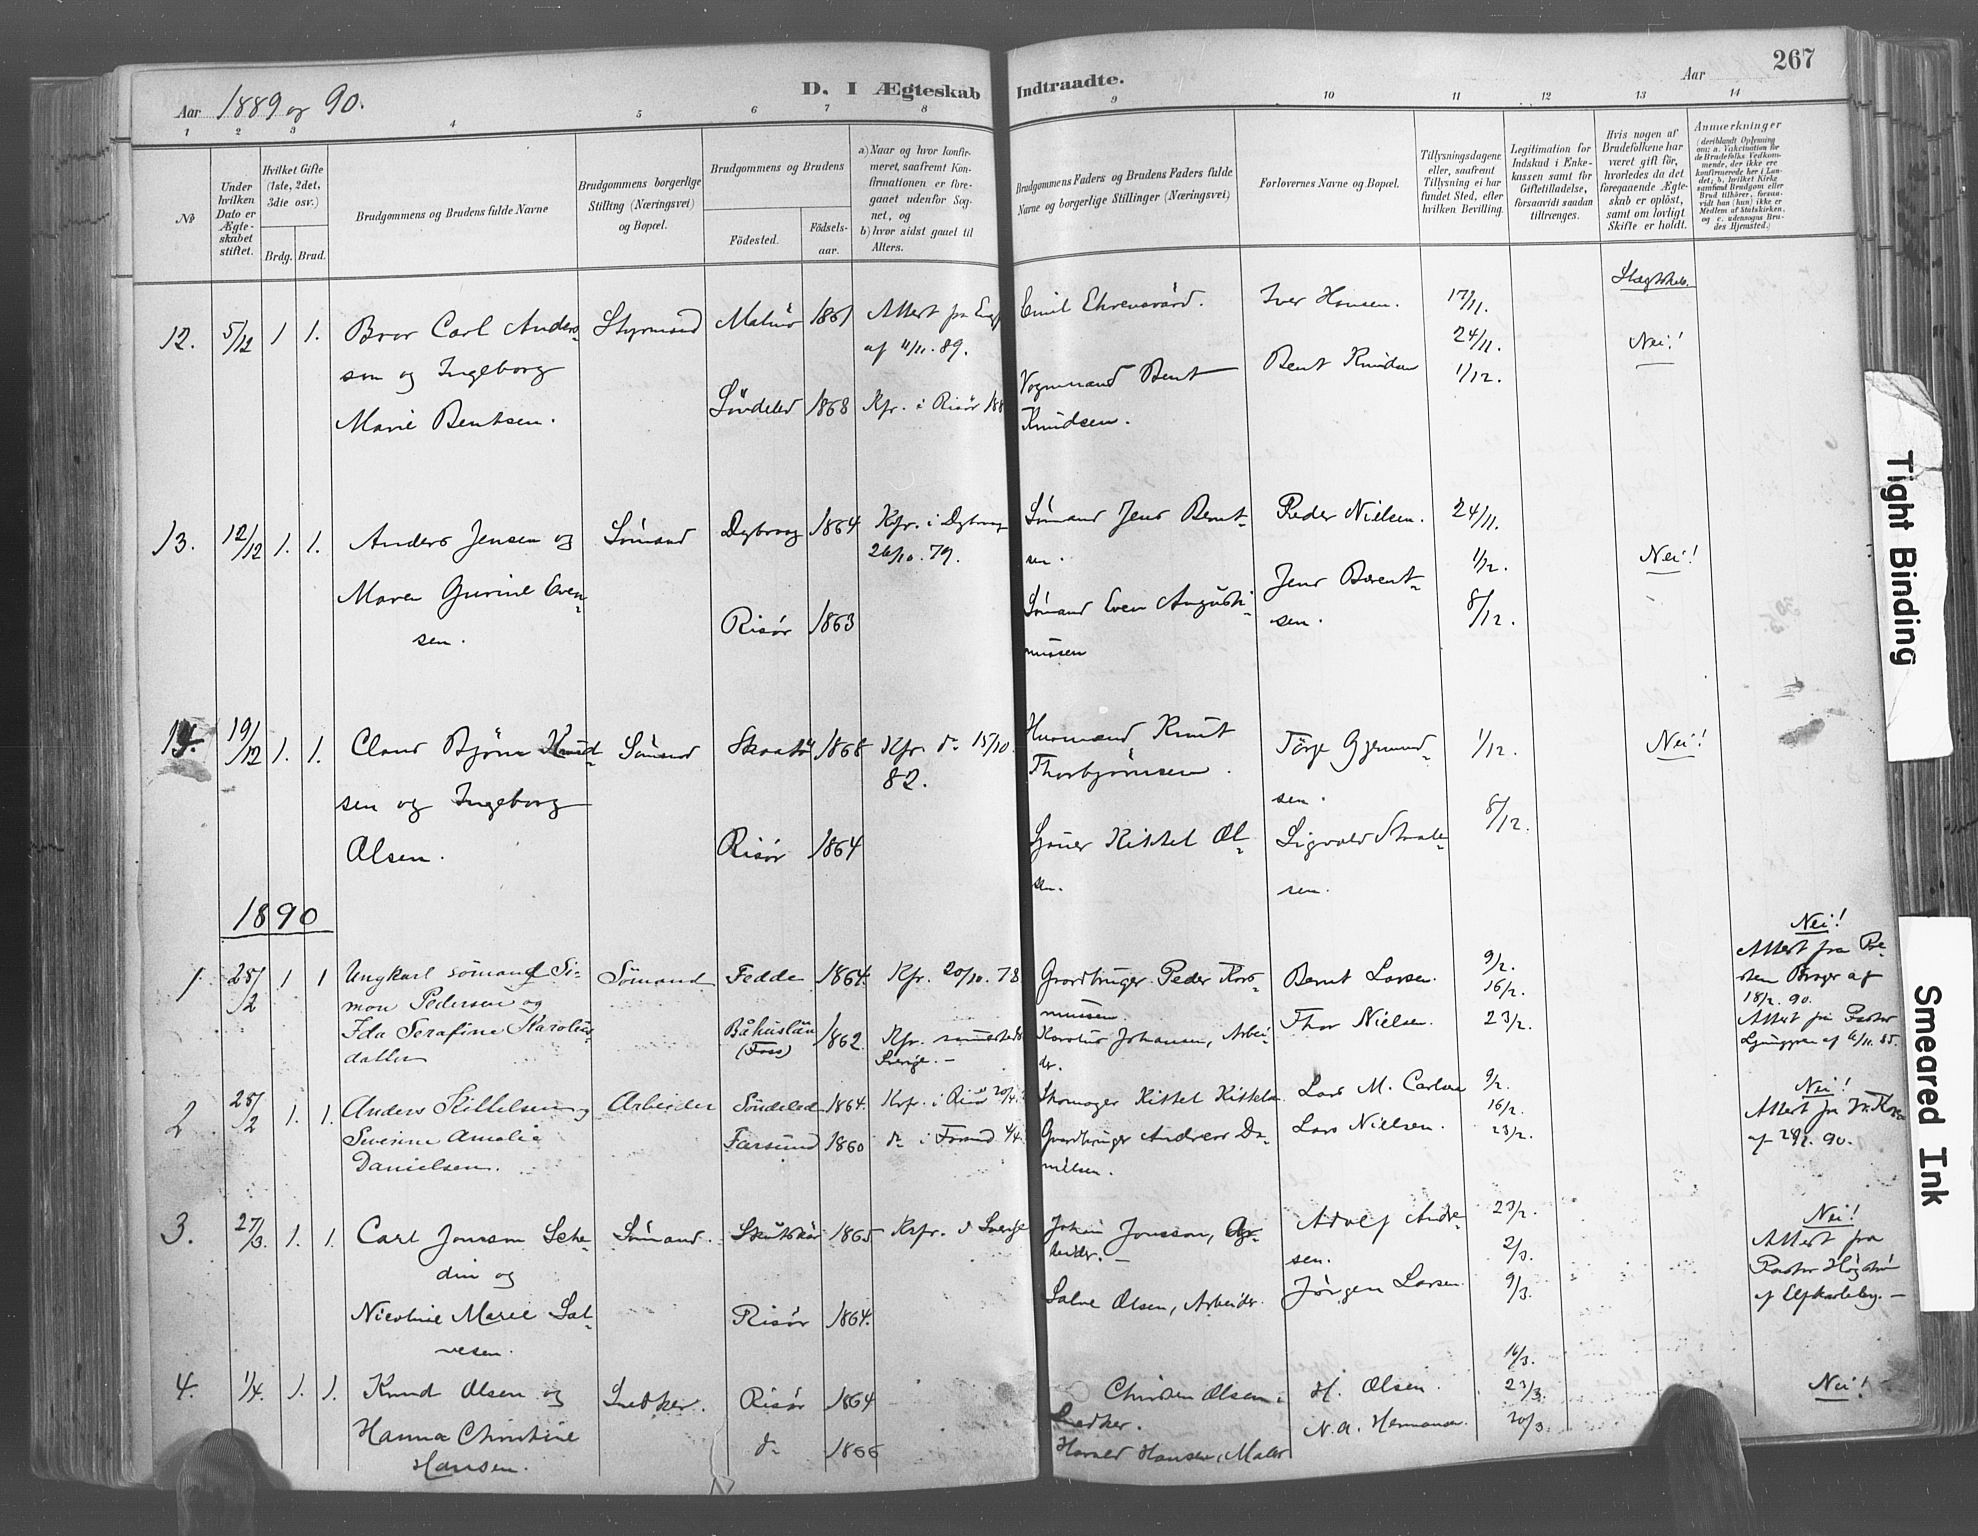 267
Aar 1889 og 90.
D. I Ægteskab Indtraadte.
Aar
1 2 3 4 5 6 7 8 9 10 11 12 13 14
No
Under hvilken Dato er Ægteskabet stiftet.
Hvilket Gifte (1ste, 2det, 3die osv.)
Brdg. Brud.
Brudgommens og Brudens fulde Navne
Brudgommens borgerlige Stilling (Næringsvei) og Bopæl.
Brudgommens og Brudens
Födested.
Födsels-aar.
a) Naar og hvor konfirmeret, saafremt Konfirmationen er foregaaet udenfor Sognet, og
b) hvor sidst gaaet til Alters.
Brudgommens Faders og Brudens Faders fulde Navne og borgerlige Stillinger (Næringsvei)
Forlovernes Navne og Bopæl.
Tillysningsdagene eller, saafremt Tillysning ei har fundet Sted, efter hvilken Bevilling.
Legitimation for Indskud i Enkekassen samt for Giftetilladelse, forsaavidt saadan tiltrænges.
Hvis nogen af Brudefolkene har været gift för, hvorledes da det foregaaende Ægteskab er oplöst, samt om lovligt Skifte er holdt.
Anmærkninger
12. 5/12 1 1. Bror Carl Anders-
son og Ingeborg
Marie Bentsen.
Styrmand
Malmö 1861
Attest fra
af 4/11. 89.
Söndeled 1868 Kfr. i Risör
Emil Ehrensvärd.
Vognmand Bent
Knudsen.
Iver Hansen.
Bent Knudsen
17/11.
24/11.
1/12.
Slægtskab.
Nei!
13. 12/12 1. 1. Anders Jensen og
Maren Gurine Even-
sen.
Sömand
Dybvaag 1864 Kfr. i Dybvaag
26/10. 79.
Risör 1863
Sömand Jens Bernt-
sen.
Sömand Even Augusti-
nussen
Peder Nielsen.
Jens Berent-
sen.
24/11.
1/12.
8/12.
Nei!
14. 19/12 1. 1. Claus Björn Knud-
sen og Ingeborg
Olsen.
Sömand
Skaatö 1868 Kfr. do 15/10.
82.
Risör 1864
Huusmand Knut
Thorbjörnsen.
Kittel Ol-
sen.
Törje Gjermund-
sen.
Sigvald
sen.
1/12.
8/12.
Nei!
1890
1. 25/2 1 1 Ungkarl sömand Si-
mon Pedersen og
Ida Serafine Karolus-
datter
Sömand
Fedde 1864. Kfr. 20/10. 78
Båhuslän 1862. Kfr. sammesteds
(Foss) Sverige. —
Gaardbruger Peder
Karolus Johansen, Arbei-
der.
Bernt Larsen.
Thor Nielsen.
9/2.
16/2.
23/2.
Nei!
Attest fra
af
18/2. 90.
Attest fra Pastor
2 25/2 1. 1. Anders Kittelsen og
Severine Amalie
Danielsen.
Arbeider
Söndeled 1864. Kfr. i Risör
Farsund 1860 do i Farsund
Skomager Kittel Kittels
Gaardbruger Andreas Da-
nielsen.
Lars M. Carlsen
Lars Nielsen.
9/2.
16/2.
23/2.
Nei!
Attest fra
af 90.
3. 27/3. 1. 1. Carl Jonsson Sche-
din og
Nicoline Marie Sal-
vesen.
Sömand.
Skutskär 1865 Kfr. i Sverige
Risör 1864.
Johan Jonsson, Ar-
beider. —
Salve Olsen, Arbeider.
Adolf Andre-
sen.
Jörgen Larsen
23/2.
2/3.
9/3.
Nei!
Attest fra
Pastor
af Elfkarleby. —
4. 1/4. 1. 1. Knud Olsen og
Hanna Christine
Hansen.
Snedker.
Risör 1864
do 1866
Christen Olsen.
Snedker.
Harald Hansen, Maler
H. Olsen.
N. A. Hermansen.
16/3.
23/3.
30/3.
Nei!
Tight Binding
Smeared Ink